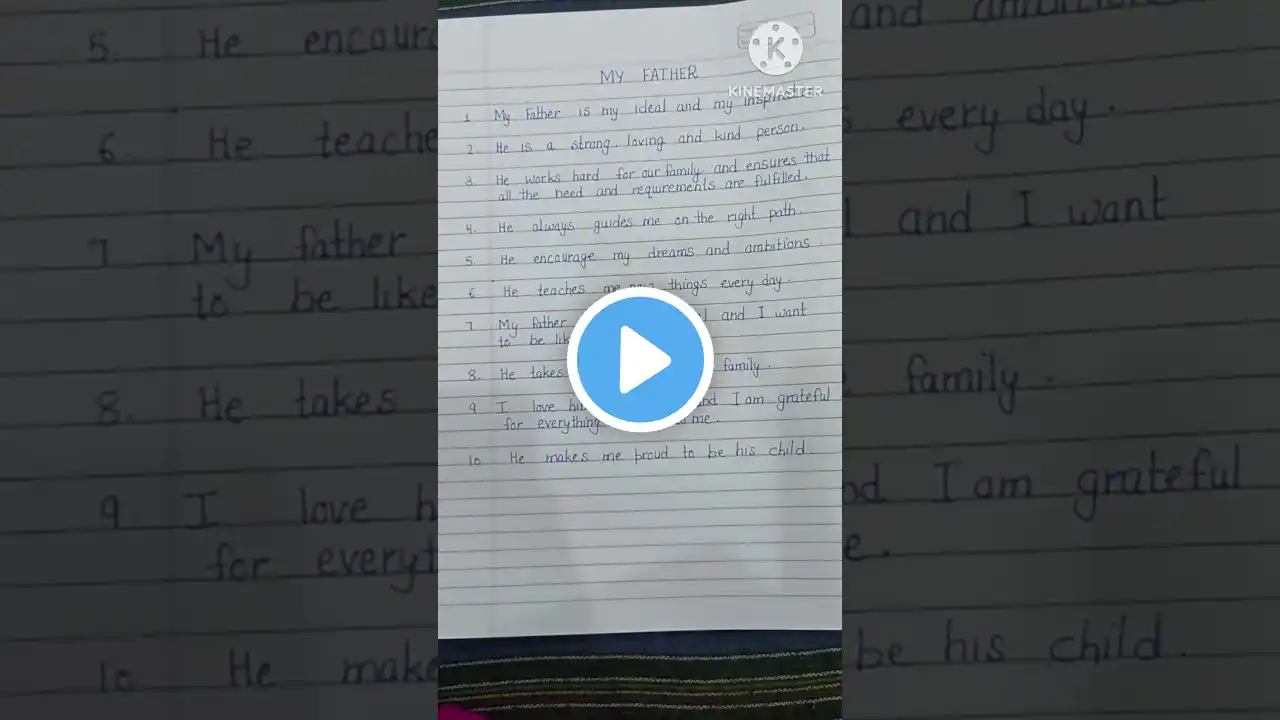 KINEMASTER
MY FATHER
1. My Father is my ideal and my
2. He is a strong, loving and kind person.
3. He works hard for our family and ensures that
all the need and requirements are fulfilled.
4. He always guides me on the right path.
5. He encourage my dreams and ambitions.
6. He teaches me things every day.
7. My father and I want
to be
8. He takes family.
9 I love and I am grateful
for everything me.
10. He makes me proud to be his child.